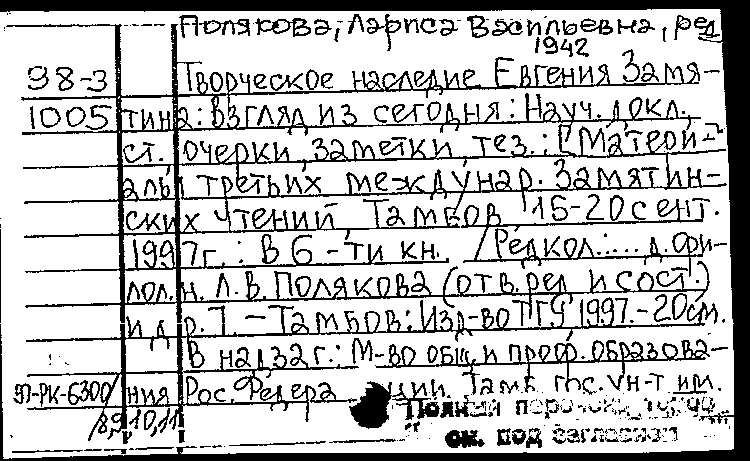 Полякова, Лариса Васильевна, ред
1942
98-3 Творческое наследие Евгения Замя-
1005 тина: Взгляд из сегодня: Науч. докл.,
ст., очерки, заметки, тез.: [Матери-
алы третьих междунар. Замятин-
ских чтений, Тамбов 16-20 сент.
1997г.: В 6-ти кн. /Редкол.:... д. фи-
лол. н. Л.В. Полякова (отв. ред и сост.)
и др. - Тамбов: Изд-во ТГУ 1997. - 20см.
В надзаг.: М-во общ. и проф. образова-
ЭП-РК-6300/ ния Рос. Федера ции. Тамб. гос. ун-т им.
8,9,10,11 Полный
см. под заглавием